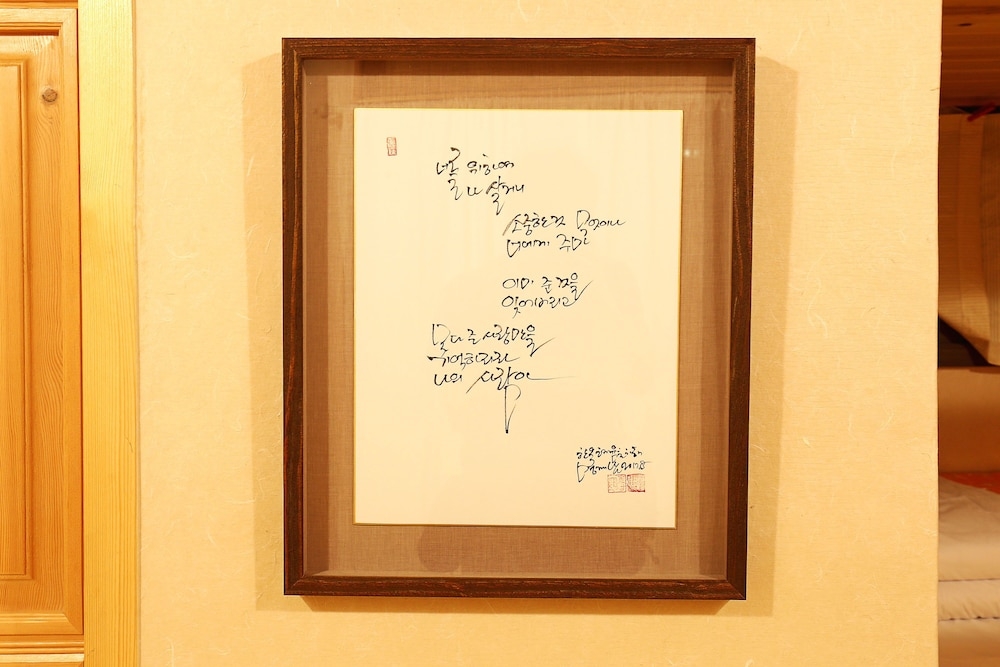 너를 위하여
나 살거니
소중한것 무엇이나
너에게 주마
이미 준것을
잊어버리고
못다 준 사랑만을
기억하리라
나의 사람아